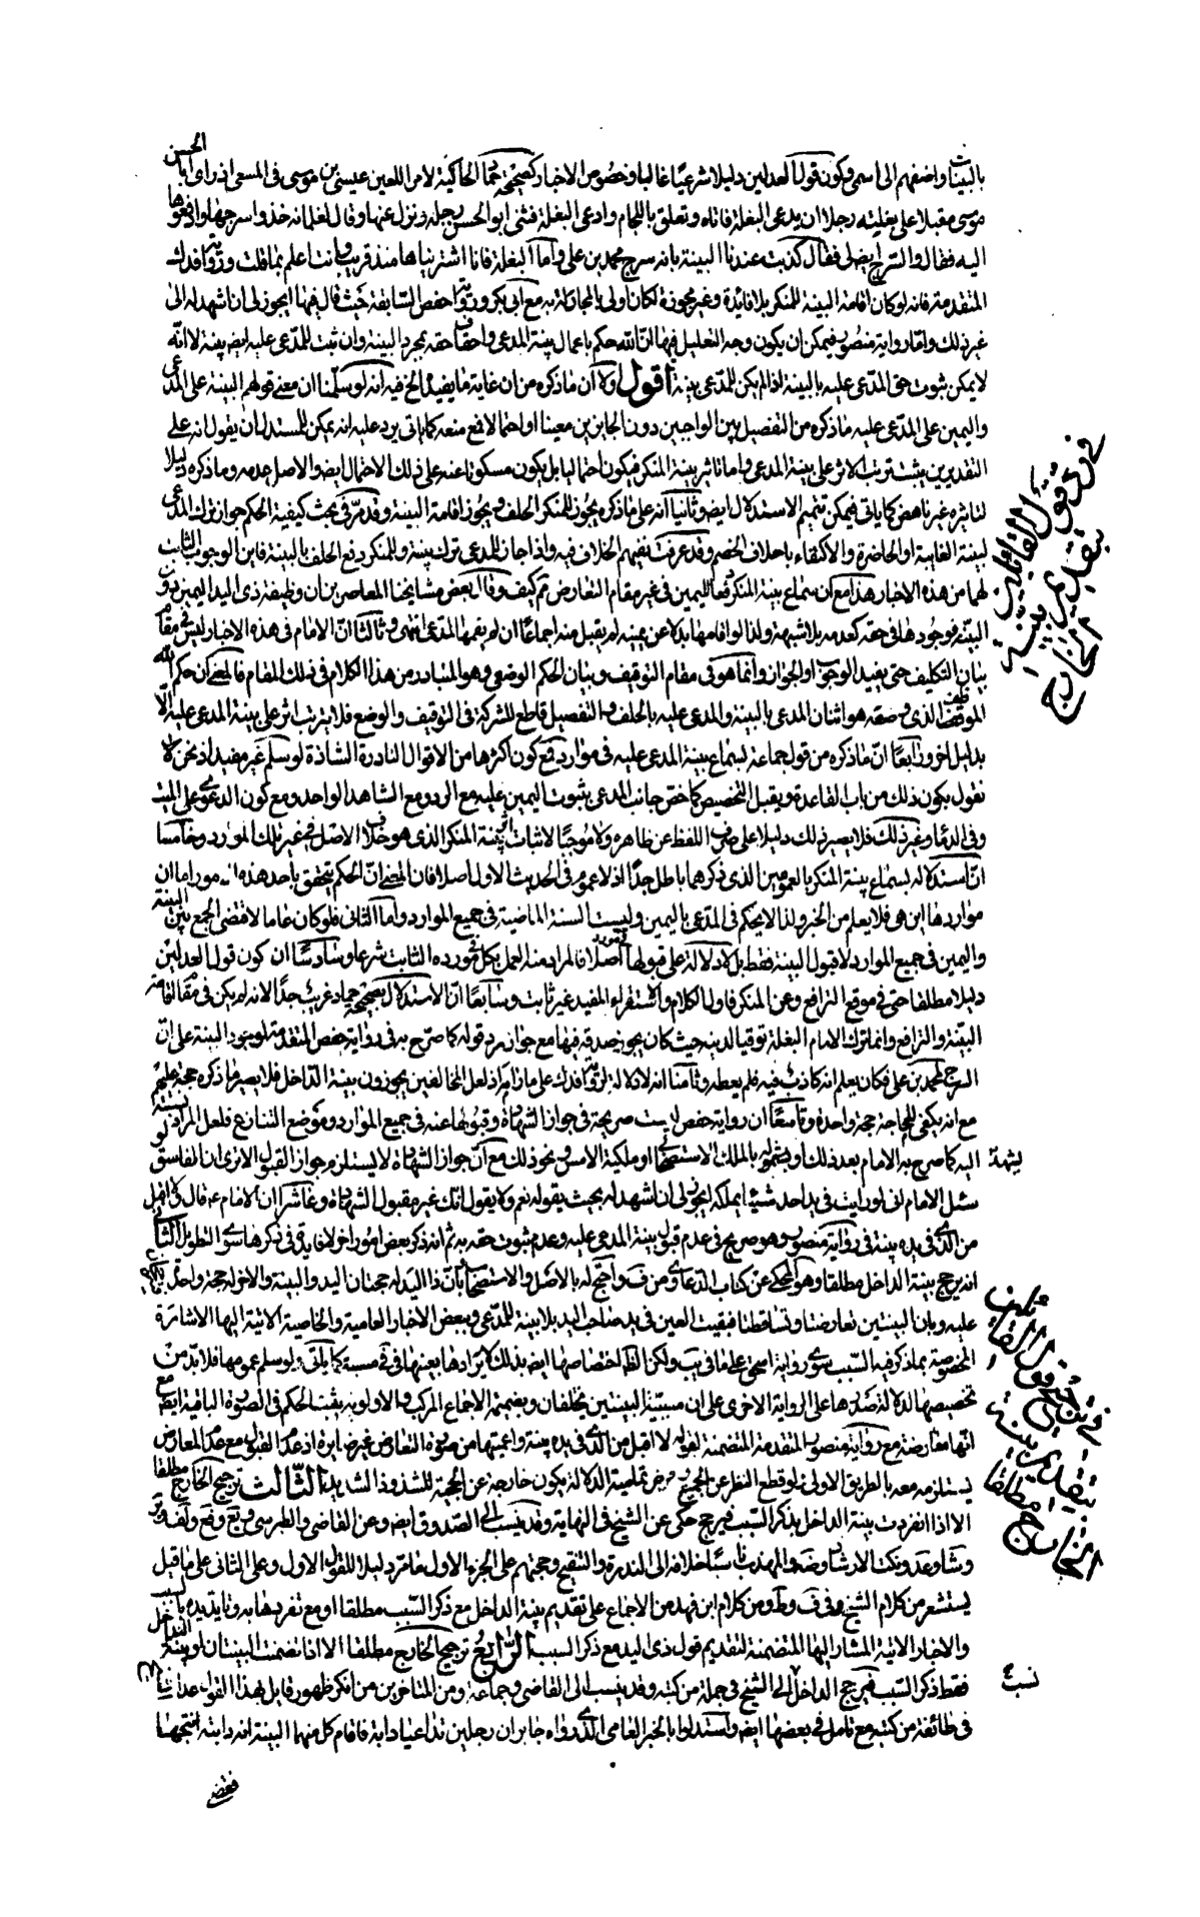 بالبينات واضفهم الى اسمى وكون قول العدلين دليلا شرعيا غالبا وخصوص الاخبار كصحيحة حماد الحاكية لامر اللعين عيسى بن موسى فى المسعى اذ راى ابا الحسن
موسى مقبلا على بغلته رجلا ان يدعى البغلة فاتاه وتعلق باللجام وادعى البغلة فثنى ابو الحسن رجله ونزل عنها وقال لغلمانه خذوا سرجها وادفعوها
اليه فقال والسرج ايضا لى فقال كذبت عندنا البينة بانه سرج محمد بن على واما البغلة فانا اشتريناها منذ قريب وانت اعلم بما قلت ورواية فدك
المتقدمة فانه لو كان اقامة البينة للمنكر بلا فائدة وغير مجوزة لكان اولى بالمحاجة به مع ابى بكر ورواية حفص السابقة حيث قال فيها ايجوز لى ان اشهد له الى
غير ذلك واما رواية منصور فيمكن ان يكون وجه التعليل فيها ان الله حكم باعمال بينة المدعى واحقاق حقه بمجرد البينة وان ثبت للمدعى عليه ايضا بينة لا انه
لا يمكن ثبوت حق المدعى عليه بالبينة اذا لم يكن للمدعى بينة اقول ولا ان ما ذكره من ان غاية ما يفيد الخ فيه انه لو سلمنا ان معنى قولهم البينة على المدعى
واليمين على المدعى عليه ما ذكره من التفصيل بين الواجبين دون الجايزين معينا او احتمالا مع منعه كما ياتى يرد عليه انه يمكن للمستدل ان يقول انه على
التقديرين يثبت ترتب الاثر على بينة المدعى واما تاثير بينة المنكر فيكون احتمالا بل يكون مسكوتا عنه على ذلك الاحتمال ايضا والاصل عدمه وما ذكره دليلا
لتاثيره غير ناهض كما ياتى فيمكن تتميم الاستدلال ايضا وثانيا انه على ما ذكره يجوز للمنكر الحلف ويجوز اقامة البينة وقد مر فى بحث كيفية الحكم جواز ترك المدعى
لبينة الغايبة او الحاضرة والاكتفاء باحلاف الخصم وقد عرفت نفيهم الخلاف فيه واذا جاز للمدعى ترك بينة وللمنكر دفع الحلف بالبينة فاين الوجوب الثابت
لهما من هذه الاخبار هذا مع ان سماع بينة المنكر دفعا لليمين فى غير مقام التعارض ثم كيف وقال بعض مشايخنا المعاصرين ان وظيفة ذى اليد اليمين دون
البينة فوجودها فى حقه كعدمه بلا شبهة ولذا لو اقامها بدلا عن يمينه لم يقبل منه اجماعا ان لم يقمها المدعى انتهى وثالثا ان الامام فى هذه الاخبار ليس فى مقام
بيان التكليف حتى يفيد الوجوب او الجواز وانما هو فى مقام التوقيف وبيان الحكم الوضعى وهو المتبادر من هذا الكلام فى ذلك المقام فالمعنى ان حكم الله
الموظف الذى وضعه هو اتيان المدعى بالبينة والمدعى عليه بالحلف والتفصيل قاطع للشركة فى التوقيف والوضع فلا يترتب اثر على بينة المدعى عليه الا
بدليل اخر ورابعا ان ما ذكره من قول جماعة لسماع بينة المدعى عليه فى موارد مع كون اكثرها من الاقوال النادرة الشاذة لو سلم غير مفيد اذ نحن لا
نقول بكون ذلك من باب القاعدة ويقبل التخصيص كما خص جانب المدعى بثبوت اليمين عليه مع الرد ومع الشاهد الواحد ومع كون الدعوى على الميت
وفى الدماء وغير ذلك فلا يصير ذلك دليلا على صرف اللفظ عن ظاهره ولا موجبا لاثبات اثر بينة المنكر الذى هو خلاف الاصل فى غير تلك الموارد وخامسا
ان استدلاله لسماع بينة المنكر بالعمومين الذى ذكرهما باطل جدا اذ لا عموم فى الحديث الاول اصلا فان المعنى ان الحكم يتحقق باحد هذه الامور اما ان
مواردها اين هى فلا يعلم من الخبر ولذا لا يحكم فى المدعى باليمين وليست السنة الماضية فى جميع الموارد واما الثانى فلو كان عاما لاقتضى الجمع بين البينة
واليمين فى جميع الموارد لا قبول البينة فقط بل لا دلالة على قبولها فى مورد اصلا فالمراد منه العمل بكل فى مورده الثابت شرعا وسادسا ان كون قول العدلين
دليلا مطلقا حتى فى موقع الترافع وعن المنكر فاول الكلام والاستقراء المفيد غير ثابت وسابعا ان الاستدلال بصحيحة حماد غريب جدا لانه لم يكن فى مقام اقامة
البينة والترافع وانما ترك الامام البغلة توقيا لدينه حيث كان يجوز صدقه فيها مع جواز رد قوله كما صرح به فى رواية حفص المتقدمة لوجود البينة على ان
السرج لمحمد بن على فكان يعلم انه كاذب فيه فلم يعطه وثامنا انه لا دلالة لرواية فدك على مرامه اذ لعل المخالفين يجوزون بينة الداخل فلا يصير ما ذكره حجة عليهم
مع انه يكفى للمحاجة حجة واحدة وتاسعا ان رواية حفص ليست صريحة فى جواز الشهادة وقبولها عنه فى جميع الموارد وموضع التنازع فلعل المراد نسبته
اليه كما صرح به الامام بعد ذلك او بشموله بالملك الاستصحابى او ملكية الامس ونحو ذلك مع ان جواز الشهادة لا يستلزم جواز القبول الا ترى ان الفاسق لو
يشهد
سئل الامام انى لو رايت فى يد احد شيئا ايملكه ايجوز لى ان اشهد له بحيث يقوله نعم ولا يقول انك غير مقبول الشهادة وعاشرا ان الامام ع قال لا اقبل
من الذى فى يده بينة فى رواية منصور وهو صريح فى عدم قبول بينة المدعى عليه وعدم ثبوت حقه به ثم انه ذكر بعض امور اخر لا فايدة فى ذكرها سوى التطويل الثانى
انه يرجح بينة الداخل مطلقا وهو المحكى عن كتاب الدعاوى من ف واحتج له بالاصل والاستصحاب بان ذا اليد له حجتان اليد والبينة والاخر له حجة واحدة
عليه وبان البينتين تعارضتا وتساقطتا فبقيت العين فى يد صاحب اليد بلا بينة للمدعى وببعض الاخبار العامية والخاصية الاتية اليها الاشارة
المخصوصة بما ذكر فيه السبب سوى رواية اسحق على ما فى يب ولكن الظ اختصاصها ايضا بذلك لايرادها بعينها فى فى مسببة كما ياتى ولو سلم عمومها فلا بد من
تخصيصها لدلالة صدرها على الرواية الاخرى على ان مسببتى البينتين يحلفان وبضميمة الاجماع المركب والاولوية يثبت الحكم فى الصورة الباقية ايضا مع
انها معارضة مع رواية منصور المتقدمة المتضمنة لقوله لا اقبل من الذى فى يده بينة واعميتها من صورة التعارض غير ضايرة اذ عدم القبول مع عدم المعارض
يستلزمه معه بالطريق الاولى ولو قطع النظر عن الجميع وفرض تمامية الدلالة يكون خارجة عن الحجية للشذوذ الشديد الثالث ترجيح الخارج مطلقا
الا اذا انفردت بينة الداخل بذكر السبب فيرجح حكى عن الشيخ فى النهاية وقد ينسب الى الصدوق ايضا وعن القاضى والطبرسى ويع وفع ولف ور
وشا وعد ونكت الارشاد وضه والمهذب ناسبا خلافه الى الندرة والتنقيح وحجتهم على الجزء الاول ما مر دليلا للقول الاول وعلى الثانى على ما قيل
يستشعر من كلام الشيخ فى ف وط ومن كلام ابن فهد من الاجماع على تقديم بينة الداخل مع ذكر السبب مطلقا او مع تفردها به وتايده بالسبب
والاخبار الاتية المشار اليها المتضمنة لتقديم قول ذى اليد مع ذكر السبب الرابع ترجيح الخارج مطلقا الا اذا تضمنت البينتان او بينة الداخل
فقط ذكر السبب فيرجح الداخل الى الشيخ فى جملة من كتبه وقد ينسب الى القاضى وجماعة ومن المتاخرين من انكر ظهور قايل بهذا القول عدا
نسب
فى طائفة من كتبه مع تامل فى بعضها ايضا واستدلوا بالخبر العامى الذى رواه جابر ان رجلين تداعيا دابة فاقام كل منهما البينة انه دابته انتجها
فقضى
فى تحقيق قول القائلين بتقديم بينة الخارج
بتقديم بينة الخارج مطلقا